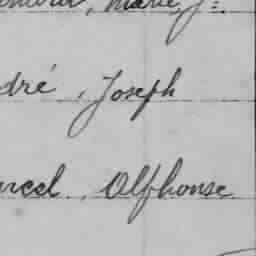 Marie J=
dré, Joseph
rcel, Alphonse